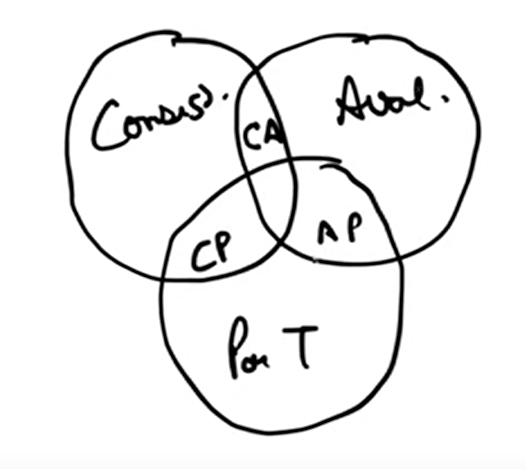 Consis.
Aval.
CA
CP
AP
Par T